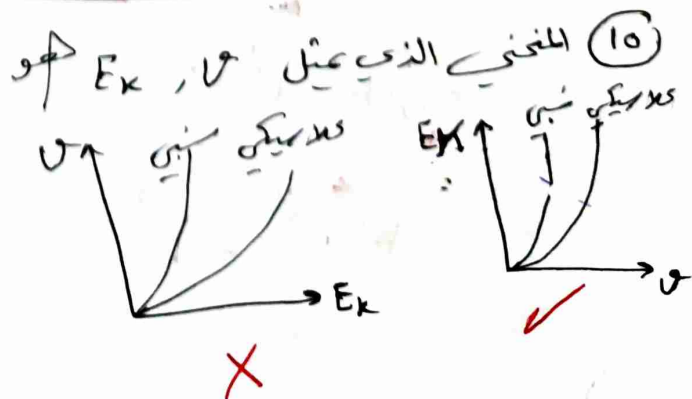 10 المنحني الذي يمثل v , Ek هو
Ek نسبي كلاسيكي
v
v نسبي كلاسيكي
Ek